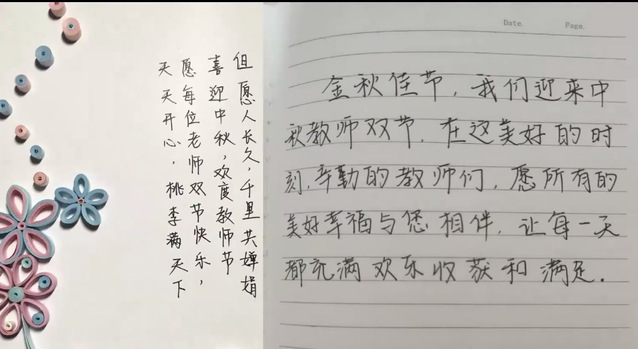 但愿人长久，千里共婵娟
喜迎中秋，欢度教师节
愿每位老师双节快乐，
天天开心，桃李满天下
Date Page
金秋佳节，我们迎来中
秋教师双节，在这美好的时
刻，辛勤的教师们，愿所有的
美好幸福与您相伴，让每一天
都充满欢乐收获和满足．